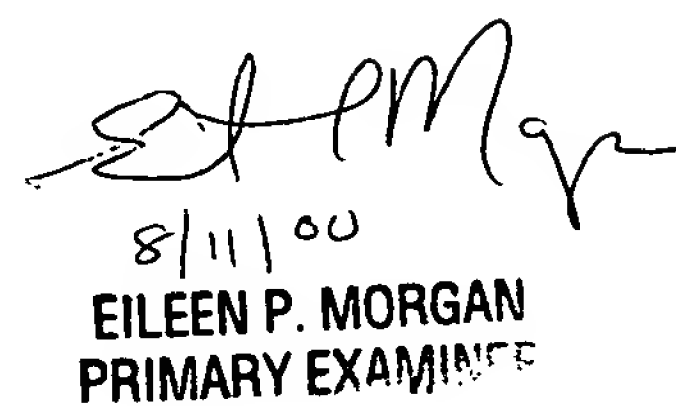 8/11/00
EILEEN P. MORGAN
PRIMARY EXAMINER